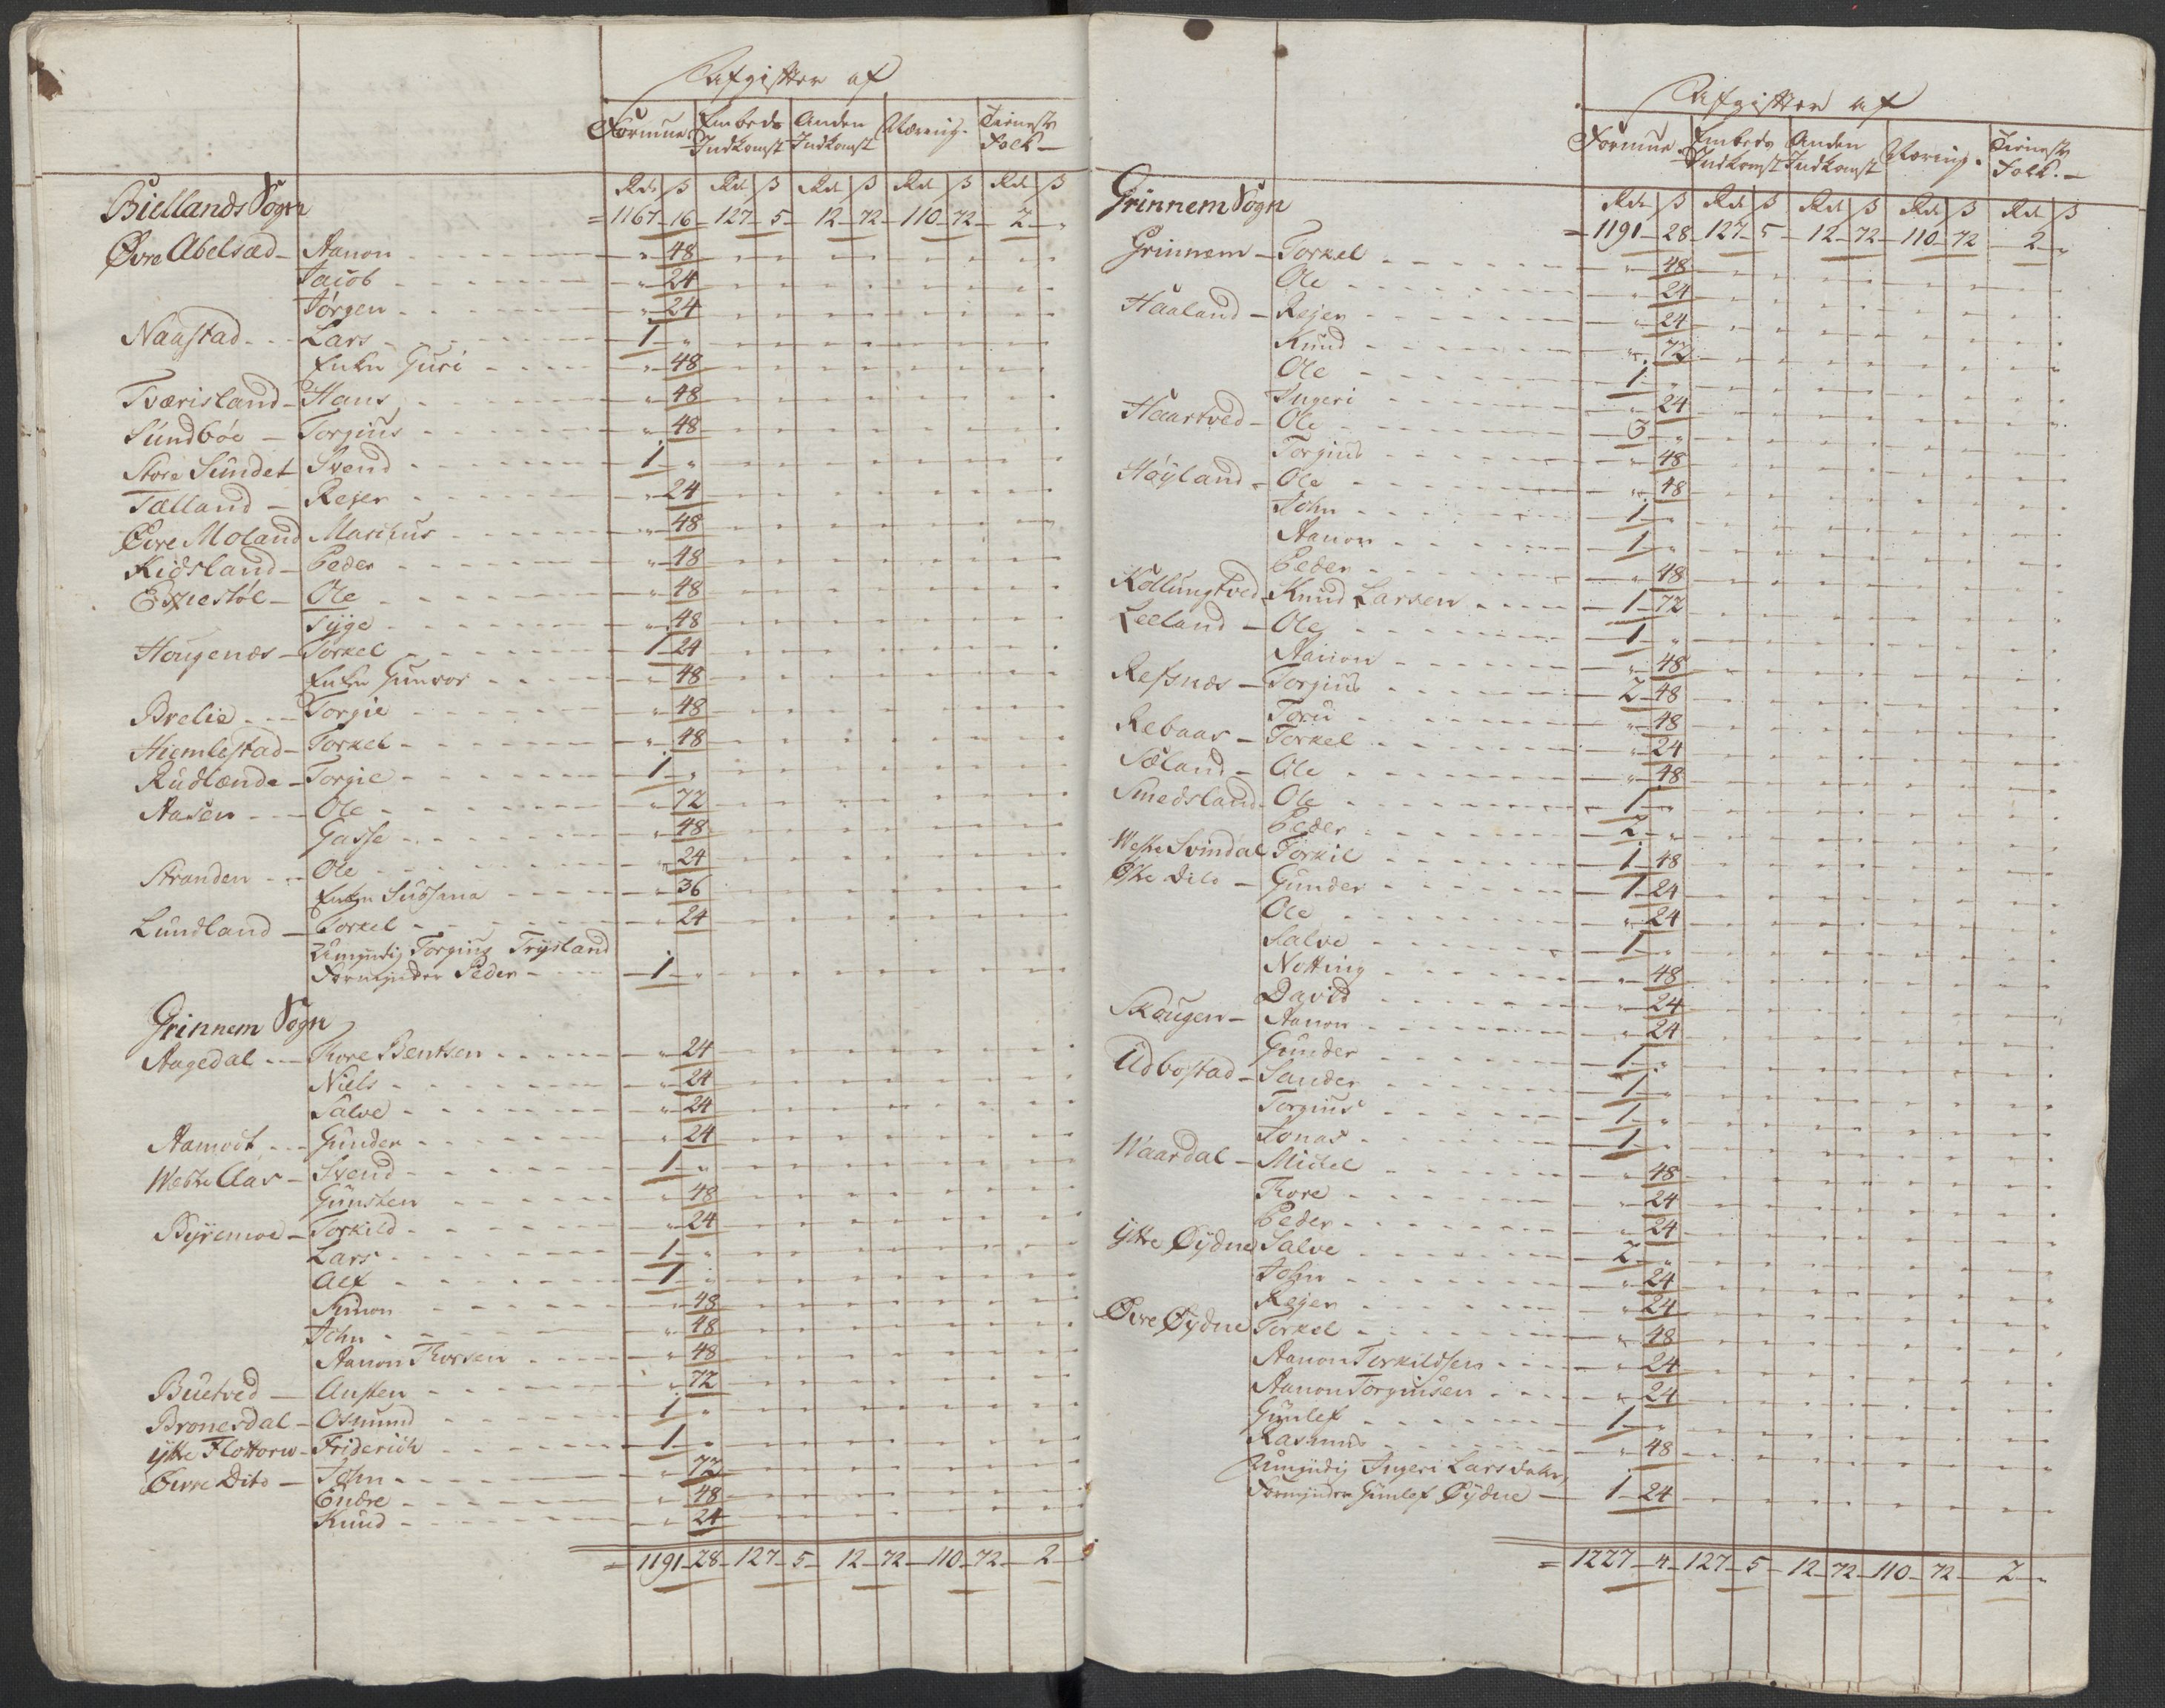 Afgifter af
Formue Embeds Indkomst Anden Indkomst Næring. Tieneste Folk
Rd ß Rd ß Rd ß Rd ß Rd ß
Biellands Sogn = 1167 16 127 5 12 72 110 72 2 "
Øvre Abelsæd Aanon " 48
Jacob " 24
Jørgen " 24
Naastad Lars 1 "
Enken Guri " 48
Tværisland Hans " 48
Sundbøe Torgius " 48
Store Sundet Svend 1 "
Tælland Rejer " 24
Øvre Moland Marcus " 48
Kidsland Peder " 48
Espestøl Ole " 48
Tyge " 48
Hougenæs Torkel 1 24
Enken Gunvor " 48
Brelie Torgie " 48
Hiemlestad Torkel " 48
Rudlænde Torgie 1 "
Aasen Ole " 72
Gasse " 48
Stranden Ole " 24
Enken Sussana " 36
Lundland Torkel " 24
Umyndig Torgius Trysland
Formynder Peder 1 "
Grinnem Sogn
Aagedal Thore Bentsen " 24
Niels " 24
Salve " 24
Aamodt Gunder " 24
Westre Aas Svend 1 "
Gunsten " 48
Byremoe Torkild " 24
Lars 1 "
Alf 1 "
Simon " 48
John " 48
Aanon Thorsen " 48
Buetved Austen " 72
Bronesdal Osmund 1 "
Ytre Flottorp Friderich 1 "
Øvre Dito John " 72
Endre " 48
Knud " 24
= 1191 28 127 5 12 72 110 72 2
Afgifter af
Formue Embeds Indkomst Anden Indkomst Næring. Tieneste Folk.
Rd ß Rd ß Rd ß Rd ß Rd ß
Grinnem Sogn = 1191 28 127 5 12 72 110 72 2 "
Grinnem Torkel " 48
Ole " 24
Haaland Rejer " 24
Knud " 72
Ole 1 "
Ingeri " 24
Haartved Ole 3 "
Torgius " 48
Høyland Ole " 48
John 1 "
Aanon 1 "
Peder " 48
Kollungtved Knud Larsen 1 72
Leeland Ole 1 "
Aanon " 48
Refsnes Torgius 2 48
Toru " 48
Rebaas Torkel " 24
Sæland Ole " 48
Smedsland Ole 1 "
Peder 2 "
Westre Svindal Torkil 1 48
Østre Dito Gunder 1 24
Ole " 24
Salve 1 "
Notting " 48
David " 24
Skougen Aanon " 24
Gunder 1 "
Udbostad Sander 1 "
Torgius 1 "
Jonas 1 "
Waardal Michel " 48
Thore " 24
Peder " 24
Ytre Øydne Salve 2 "
John " 24
Rejer " 24
Øvre Øydne Torkel " 48
Aanon Torkildsen " 24
Aanon Torgiusen " 24
Gunlef 1 "
Rasmus " 48
Umyndig Ingeri Larsdatter,
Formynder Gunlef Øydne 1 24
= 1227 4 127 5 12 72 110 72 2 "